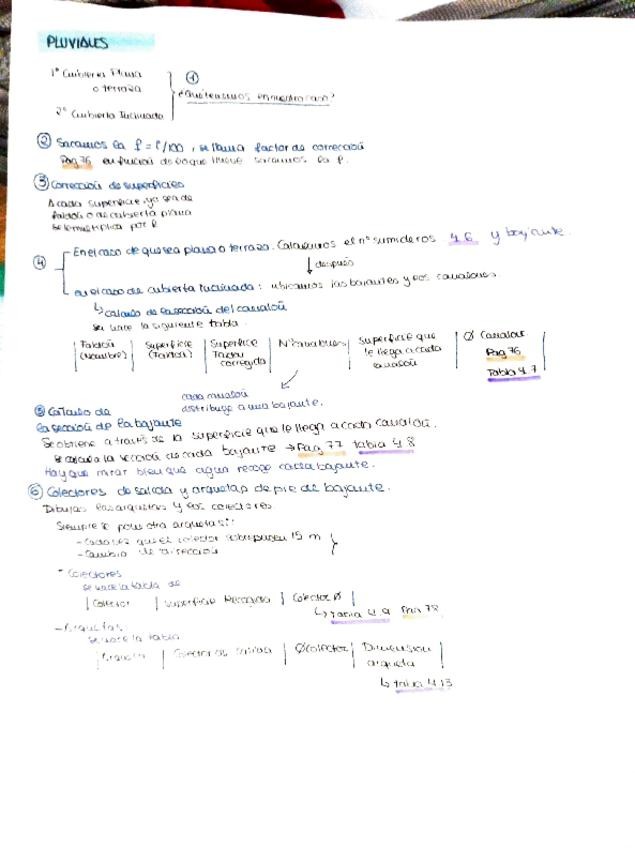 PLUVIALES
1º Cubierta Plana
o terraza
2º Cubierta Inclinada
① ¿Qué tenemos en nuestro caso?
② Sacamos la f = i/100, se llama factor de corrección
Pag 76 en función de lo que llueve sacamos la f.
③ Corrección de superficies
A cada superficie, ya sea de
faldón o de cubierta plana
se le multiplica por f
④ En el caso de que sea plana o terraza. Calculamos el nº sumideros 4.6 y bajante.
↓ después
en el caso de cubierta inclinada: ubicamos las bajantes y los canalones
↳ cálculo de la sección del canalón
se hace la siguiente tabla.
Faldón (nombre) | Superficie (Faldón) | Superficie Faldón corregida | Nº canalones | Superficie que le llega a cada canalón | Ø Canalón Pag 76 Tabla 4.7
cada canalón
distribuye a una bajante.
⑤ Cálculo de
la sección de la bajante
Se obtiene a través de la superficie que le llega a cada canalón.
se calcula la sección de cada bajante → Pag 77 tabla 4.8
Hay que mirar bien qué agua recoge cada bajante.
⑥ Colectores de salida y arquetas de pie de bajante.
Dibujas las arquetas y los colectores
Siempre se pone otra arqueta si:
- Cada vez que el colector sobrepase 15 m
- Cambio de dirección
- Colectores
se hace la tabla de
| Colector | Superficie Recogida | Colector Ø |
↳ tabla 4.9 Pag 78
- Arquetas
se hace la tabla
| Arqueta | Colector de salida | Ø Colector | Dimensión arqueta |
↳ tabla 4.13